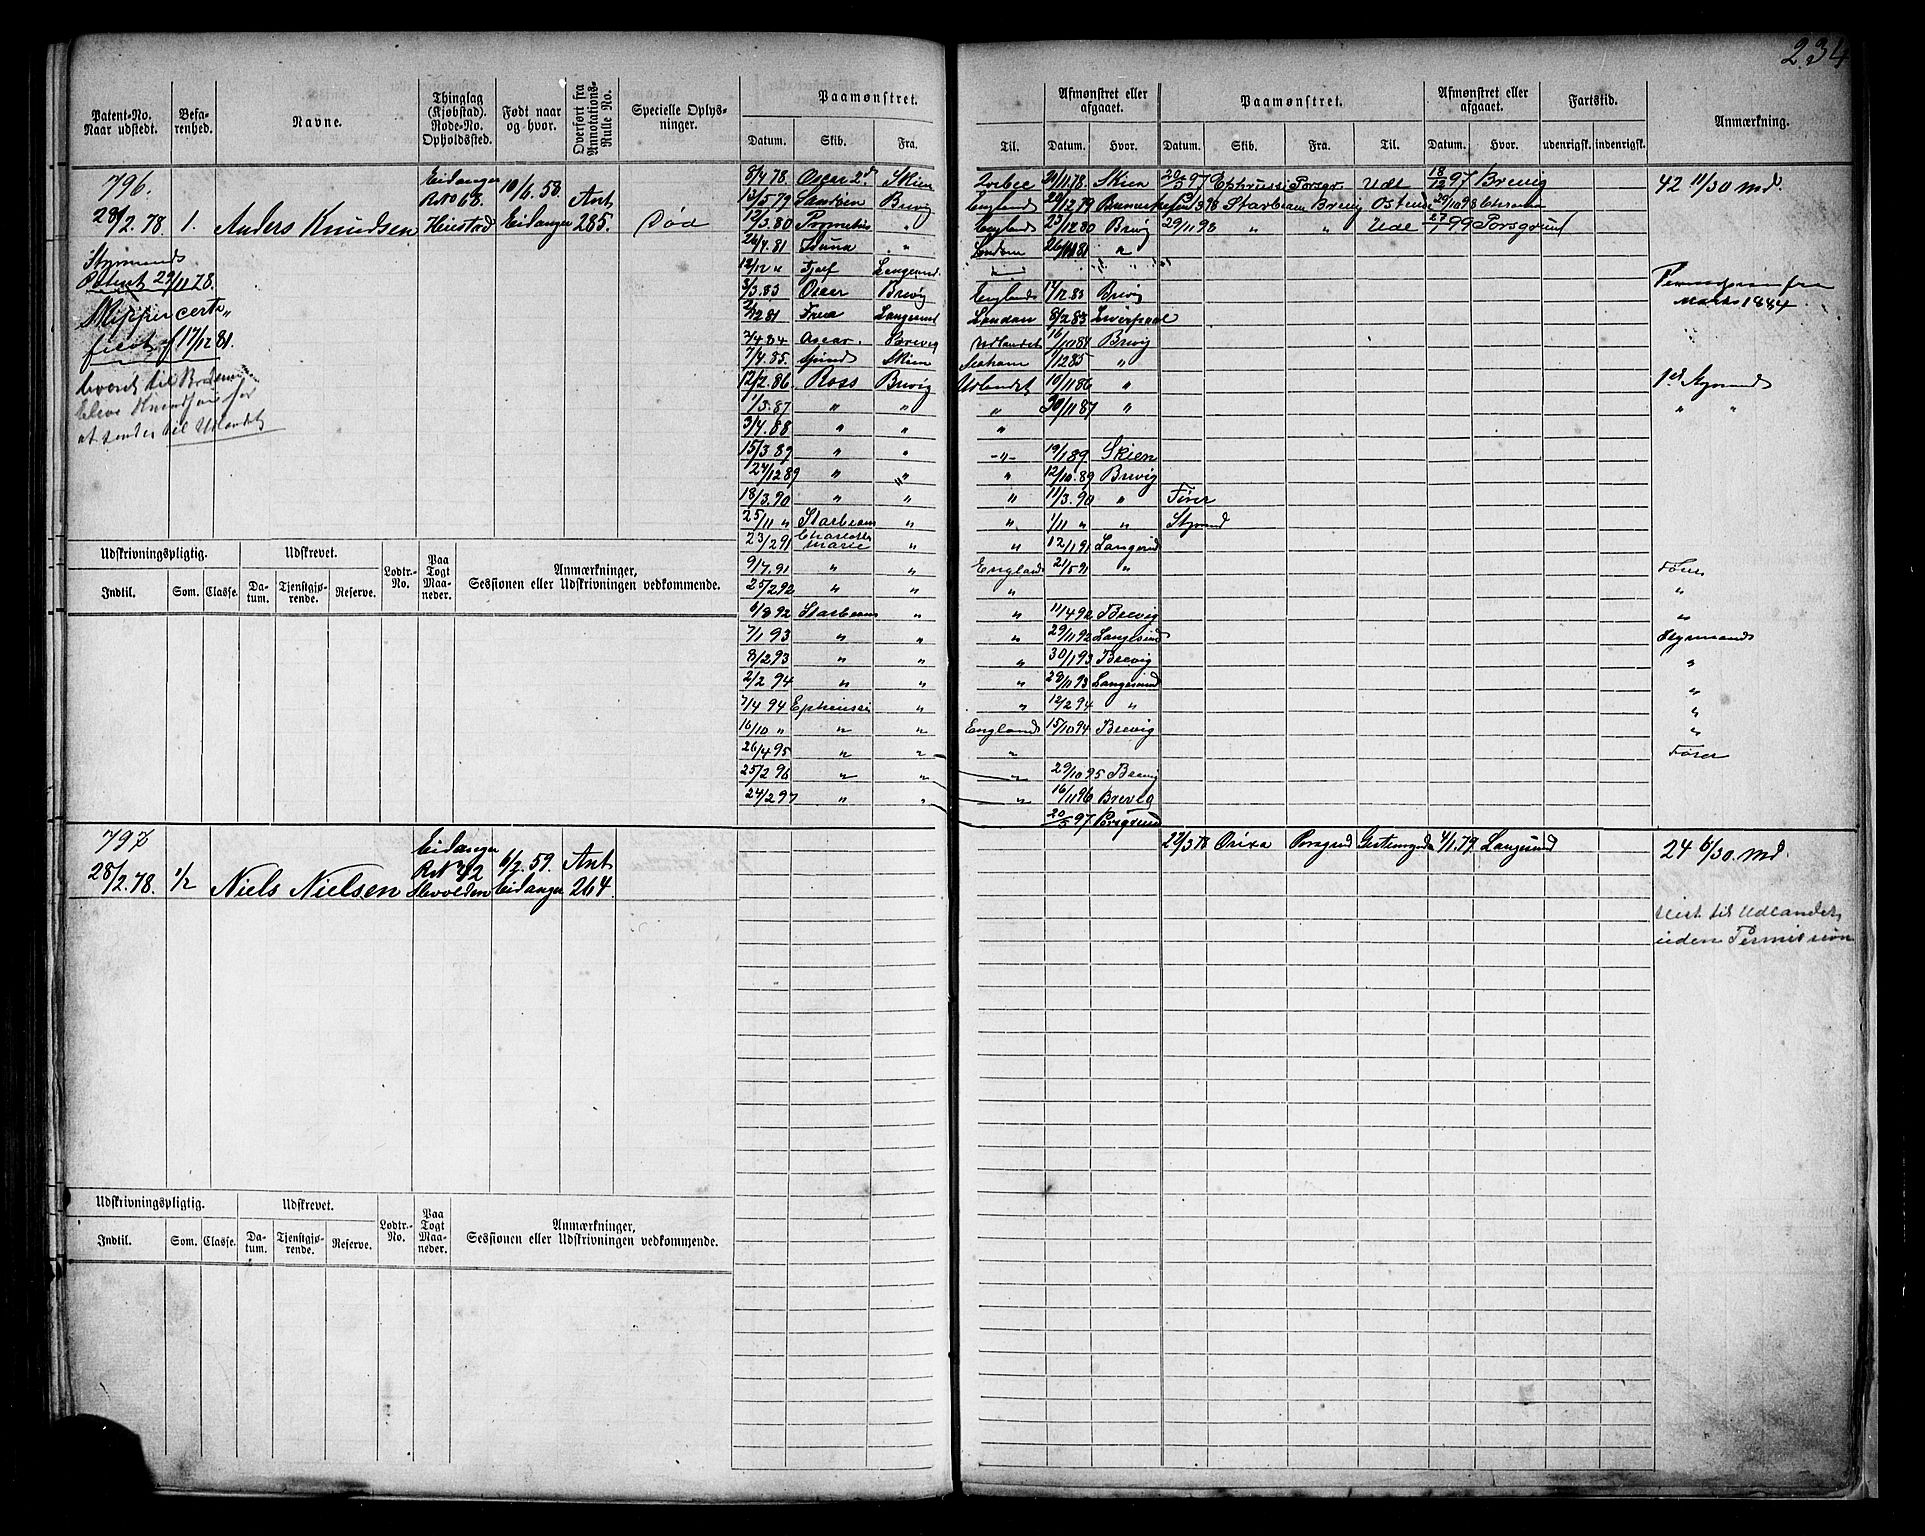 234
Patent-No. Naar udstedt.
Befarenhed.
Navne.
Thinglag (Kjøbstad). Rode-No. Opholdssted.
Født naar og hvor.
Overført fra Annotations-Rulle No.
Specielle Oplysninger.
Paamønstret.
Datum. Skib. Fra.
Til.
Afmønstret eller afgaaet.
Datum. Hvor.
Paamønstret.
Datum. Skib. Fra. Til.
Afmønstret eller afgaaet.
Datum. Hvor.
Fartstid.
udenrigsk. indenrigsk.
Anmærkning.
796.
28/2.78 1. Anders Knudsen
Eidanger
R.No 68.
Heistad
10/6.58
Eidanger
Ant.
285.
Død
Styrmands
Patent 29/11 78.
Skipper certi„
ficat af 17/12 81.
at sendes til Udlandet
8/4 78. Oscar 2d. Skien 21/11.78. Skien 20/5 97 Ephrussi Porsgr. Udl 18/12 97 Brevig 42 11/30 Md.
13/5 79 Brevig England 29/12 79 Starbeam Brevig Ostende 29/10 98
12/3.80 Prometheus „ England 23/12 80 Brevig 29/11 98 „ „ Udl 27/1 99 Porsgrund
26/4.81 Iduna „ London „
12/12 „ Langesund „
3/3.83 Oscar Brevig England 14/12.83 Brevig Permission fra Marts 1884.
2/12 81 Freia Langesund London 8/2 83 Liverpool
2/4 84 Oscar. Udlandet 16/10 84 Brevig
7/4.85. Skien 1/12 85 „
12/2.86 Ross Brevig Udlandet 19/11 86 „ 1st Styrmand
1/3.87 „ „ „ 30/11 87 „ „ „
3/4.88 „ „ „
15/3.89 „ „ -„- 19/1 89 Skien
24/12 89 „ „ „ 12/10.89 Brevig
18/3.90 „ „ „ 11/3.90 „ Fører
25/11 „ Starbeam „ „ 1/11 „ „ Styrmd
23/2 91 Charlotte Marie „ „ 12/1 91 Langesund
9/7.91 „ „ England 21/5 91 „ Fører
25/2 92 „ „ „ „
6/8 92 Starbeam „ „ 11/4 92 Brevig „
7/1 93 „ „ „ 29/11 92 Langesund Styrmand
8/2 93 „ „ „ 30/1 93 Brevig „
2/2 94 „ „ „ 28/11 93 Langesund „
7/4 94 Ephrussi „ „ 12/2 94 „ „
16/10 „ „ „ England 15/10 94 Brevig „
26/4 95 „ „ „ Fører
25/2 96 „ „ „ 29/10 95 Brevig
24/2 97 „ „ „ 16/11 96 Brevig
20/5 97 Porsgrund
Udskrivningspligtig.
Indtil. Som. Classe.
Udskrevet.
Datum. Tjenstgjørende. Reserve.
Lodtr.-No.
Paa Togt Maaneder.
Anmærkninger, Sessionen eller Udskrivningen vedkommende.
797
28/2.78. 1/2 Niels Nielsen
Eidanger
R.No 42
Eidanger
6/2.59.
Ant.
264
22/3 78 Orixa Porsgrd 4/1.79 Langesund 24 6/30. Md.
Reist til Udlandet,
uden Permission
Udskrivningspligtig.
Indtil. Som. Classe.
Udskrevet.
Datum. Tjenstgjørende. Reserve.
Lodtr.-No.
Paa Togt Maaneder.
Anmærkninger, Sessionen eller Udskrivningen vedkommende.